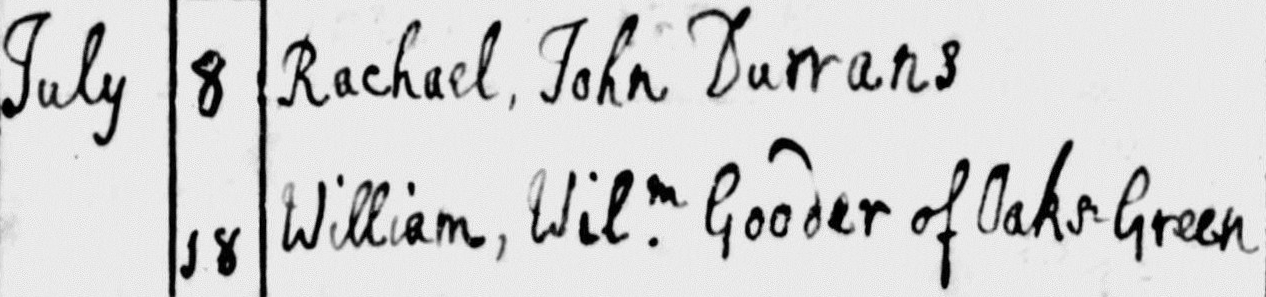 July 8 Rachael, John Durrans
18 William, Wil.m Gooder of Oaks-Green